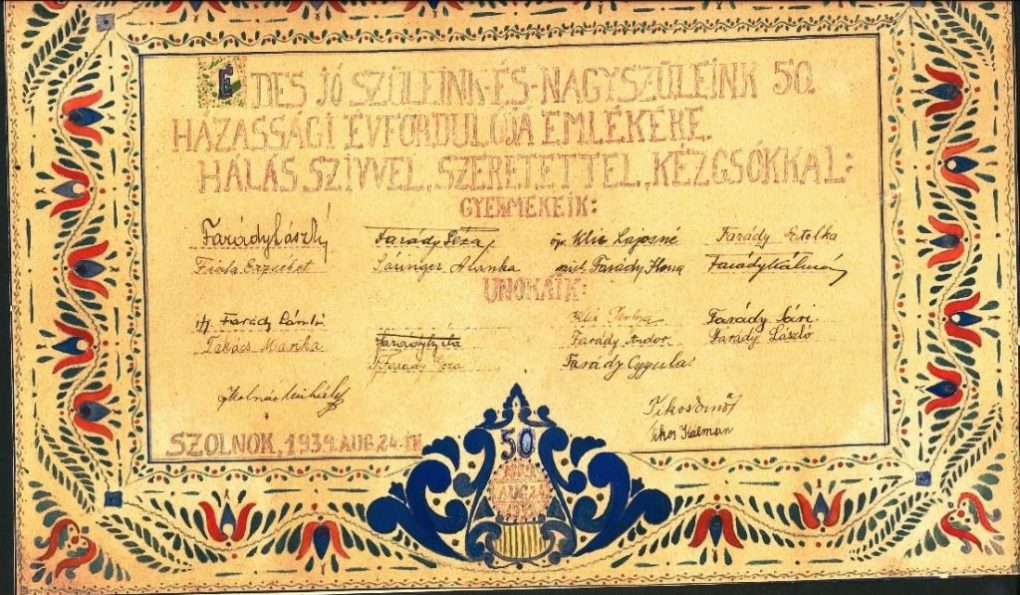 ÉDES JÓ SZÜLEINK-ÉS-NAGYSZÜLEINK 50.
HÁZASSÁGI ÉVFORDULÓJA EMLÉKÉRE.
HÁLÁS SZIVVEL, SZERETETTEL, KÉZCSÓKKAL:
GYERMEKEIK:
Farády László Farády Géza özv. Klie Lajosné Farády Etelka
Fiola Erzsébet Sáringer Aranka Farády Ilona Farády Kálmán
UNOKÁIK:
ifj. Farády László Farády Sári
Takács Manka Farády Gyula Farády Andor Farády László
Farády Géza Farády Gyula
Molnár Mihály Tikos Ernő
Tikos Kálmán
SZOLNOK, 1939. AUG. 24.-ÉN
50
AUG. 24